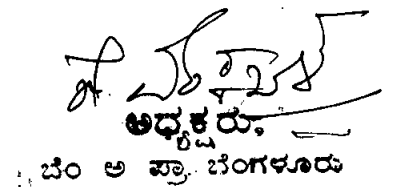 ಅಧ್ಯಕ್ಷರು,
ಬೆಂ ಅ ಪ್ರಾ. ಬೆಂಗಳೂರು